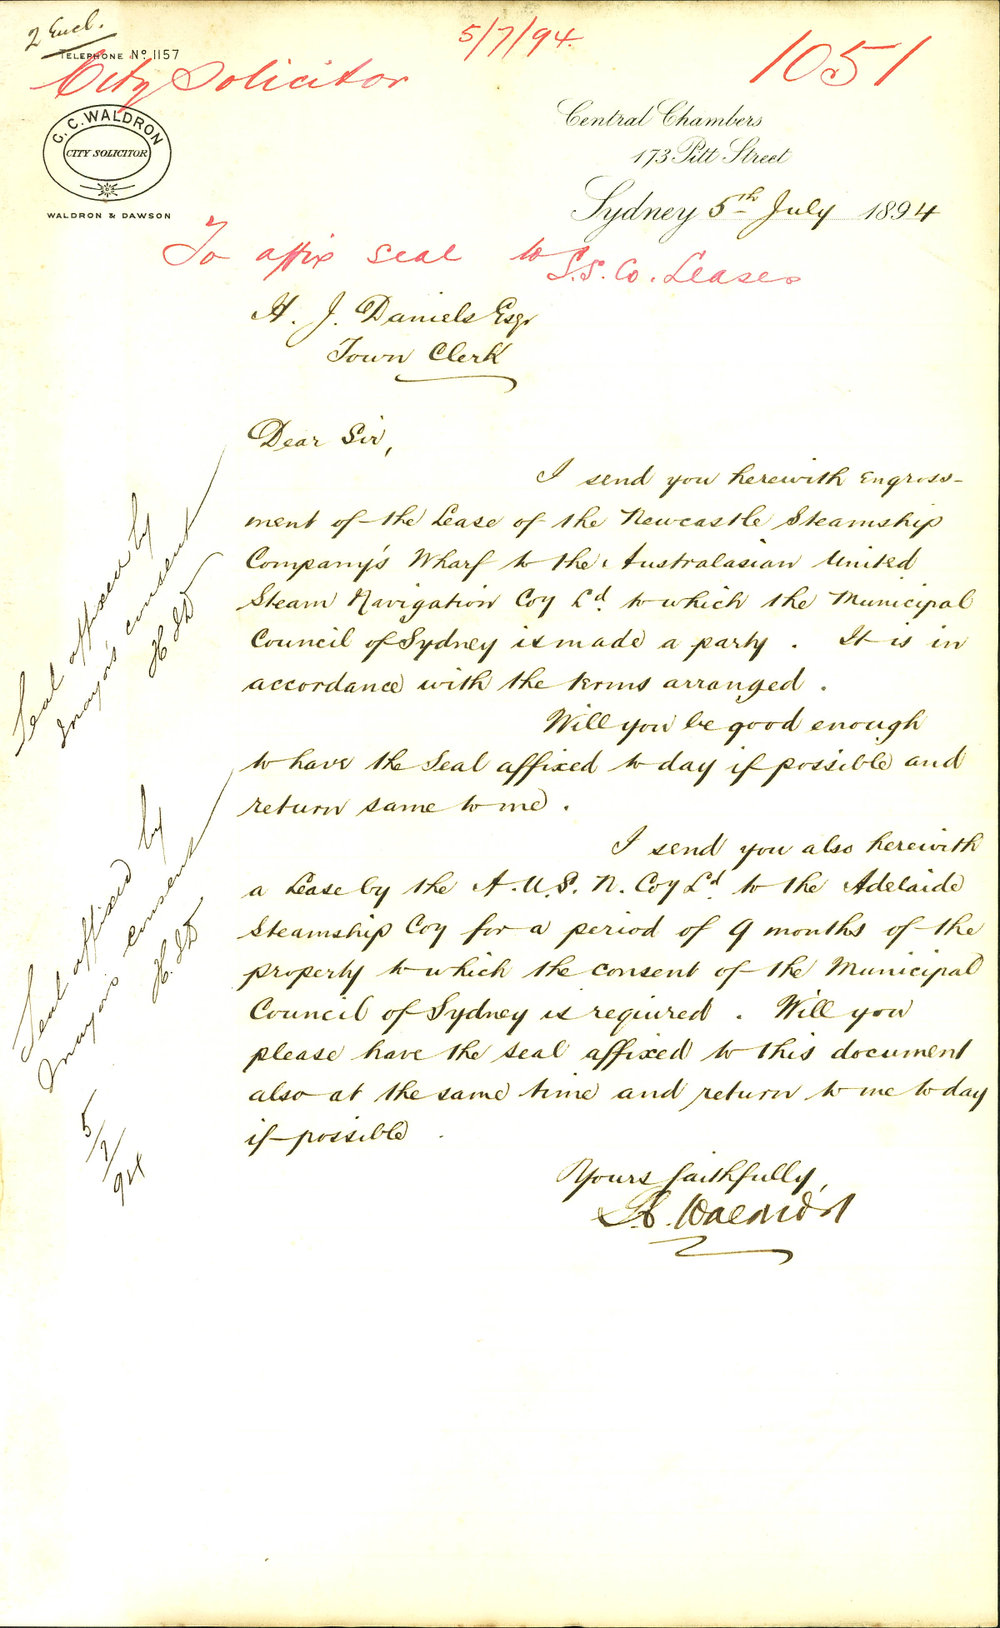 2 Encl.
TELEPHONE No. 1157
5/7/94.
1051
City Solicitor
G. C. WALDRON
CITY SOLICITOR
WALDRON & DAWSON
Central Chambers
173 Pitt Street
Sydney 5th July 1894
To affix seal to
S.S. Co. Leases
H. J. Daniels Esqr
Town Clerk
Dear Sir,
I send you herewith engross-
ment of the Lease of the Newcastle Steamship
Company's Wharf to the Australasian United
Steam Navigation Coy Ld. to which the Municipal
Council of Sydney is made a party. It is in
accordance with the terms arranged.
Will you be good enough
to have the Seal affixed to day if possible and
return same to me.
I send you also herewith
a Lease by the A.U.S.N. Coy Ld. to the Adelaide
Steamship Coy for a period of 9 months of the
property to which the consent of the Municipal
Council of Sydney is required. Will you
please have the seal affixed to this document
also at the same time and return to me to day
if possible.
Yours faithfully,
Waldron
Seal affixed by
Mayor's consent
H.J.D
Seal affixed by
Mayor's consent
H.J.D
5/7/94